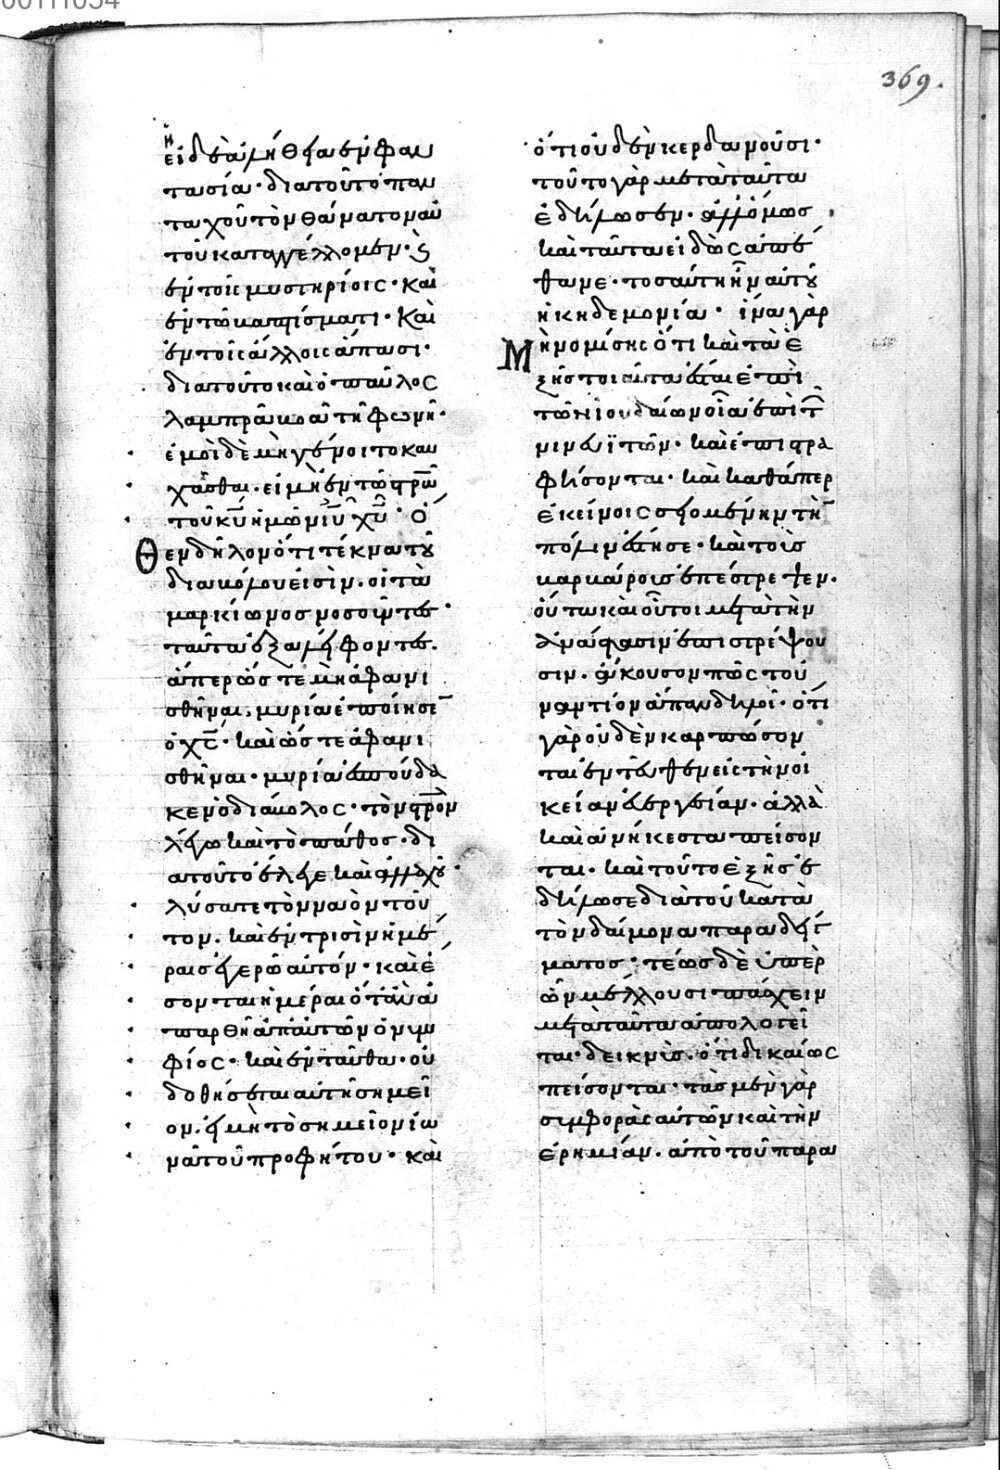 369.
εἰδὲ ἀλήθεια ἐν φαν
τασία· διατοῦτο παν
ταχοῦ τὸν θάνατον αὐ
τοῦ καταγγέλλομεν· ϗ
ἐν τοῖς μυστηρίοις· καὶ
ἐν τῶ βαπτίσματι· καὶ
ἐν τοῖς ἄλλοις ἅπασι·
διατοῦτο καὶ ὁ παῦλος
λαμπρᾶ βοᾶ τῆ φωνῆ·
ἐμοὶ δὲ μὴ γένοιτο καυ
χᾶσθαι. εἰ μὴ ἐν τῶ στρῶ
τοῦ κυ ἡμῶν ιυ χυ· ὅ
Θεν δῆλον ὅτι τέκνα τοῦ
διαβόλου εἰσὶν. οἱ τὰ
μαρκίωνος νοσοῦντες·
ταῦτα ἐξαλείφοντες.
ἅπερ ὥστε μὴ ἀφανι
σθῆναι, μυρία ἐποίησεν
ὁ χς· καὶ ὥστε ἀφανι
σθῆναι· μυρία ἐσπούδα
κεν ὁ διάβολος· τὸν στρον
λέγω καὶ τὸ πάθος· δι
ατοῦτο ἔλεγε καὶ ἀλλαχοῦ·
λύσατε τὸν ναὸν τοῦ
τον. καὶ ἐν τρισὶν ἡμέ
ραις ἐγερῶ αὐτόν· καὶ ἐ
σονται ἡμέραι ὅταν ἀ
παρθῆ ἀπ αὐτῶν ὁ νυμ
φίος· καὶ ἐνταῦθα· οὐ
δοθήσεται αὐτῆ σημεῖ
ον. εἰ μὴ τὸ σημεῖον ἰω
νᾶ τοῦ προφήτου· καὶ
ὅτι οὐδὲν κερδανοῦσι·
τοῦτο γὰρ μετὰ ταῦτα
ἐδήλωσεν. ἀλλ ὅμως
καὶ ταῦτα εἰδὼς ἀπέ
θανε· τοσαύτη ἦν αὐτοῦ
ἡ κηδεμονία· ἵνα γὰρ
Μὴ νομίσης ὅτι καὶ τὰ ἐ
ξῆς τοιαῦτα ἔσται ἐπὶ
τῶν ἰουδαίων οἷα ἐπὶ τῶν
νινευϊτῶν· καὶ ἐπιστρα
φήσονται· καὶ καθάπερ
ἐκείνοις σειομένην τὴν
πόλιν ἔστησε· καὶ τοὺς
βαρβάρους ἐπέστρεψεν.
οὕτω καὶ οὗτοι μετὰ τὴν
ἀνάστασιν ἐπιστρέψου
σιν. ἄκουσον πῶς τοὐ
ναντίον ἅπαν δηλοῖ· ὅτι
γὰρ οὐδὲν καρπώσον
ται ἐντεῦθεν εἰς τὴν οἰ
κείαν εὐεργεσίαν. ἀλλὰ
καὶ ἀνήκεστα πείσον
ται· καὶ τοῦτο ἑξῆς ἐ
δήλωσε διὰ τοῦ κατὰ
τὸν δαίμονα παραδείγ
ματος· τέως δὲ ὑπὲρ
ὧν μέλλουσι πάσχειν
μετὰ ταῦτα ἀπολογεῖ
ται· δεικνὺς. ὅτι δικαίως
πείσονται· τὰς μὲν γὰρ
συμφορὰς αὐτῶν καὶ τὴν
ἐρημίαν. ἀπὸ τοῦ παρα